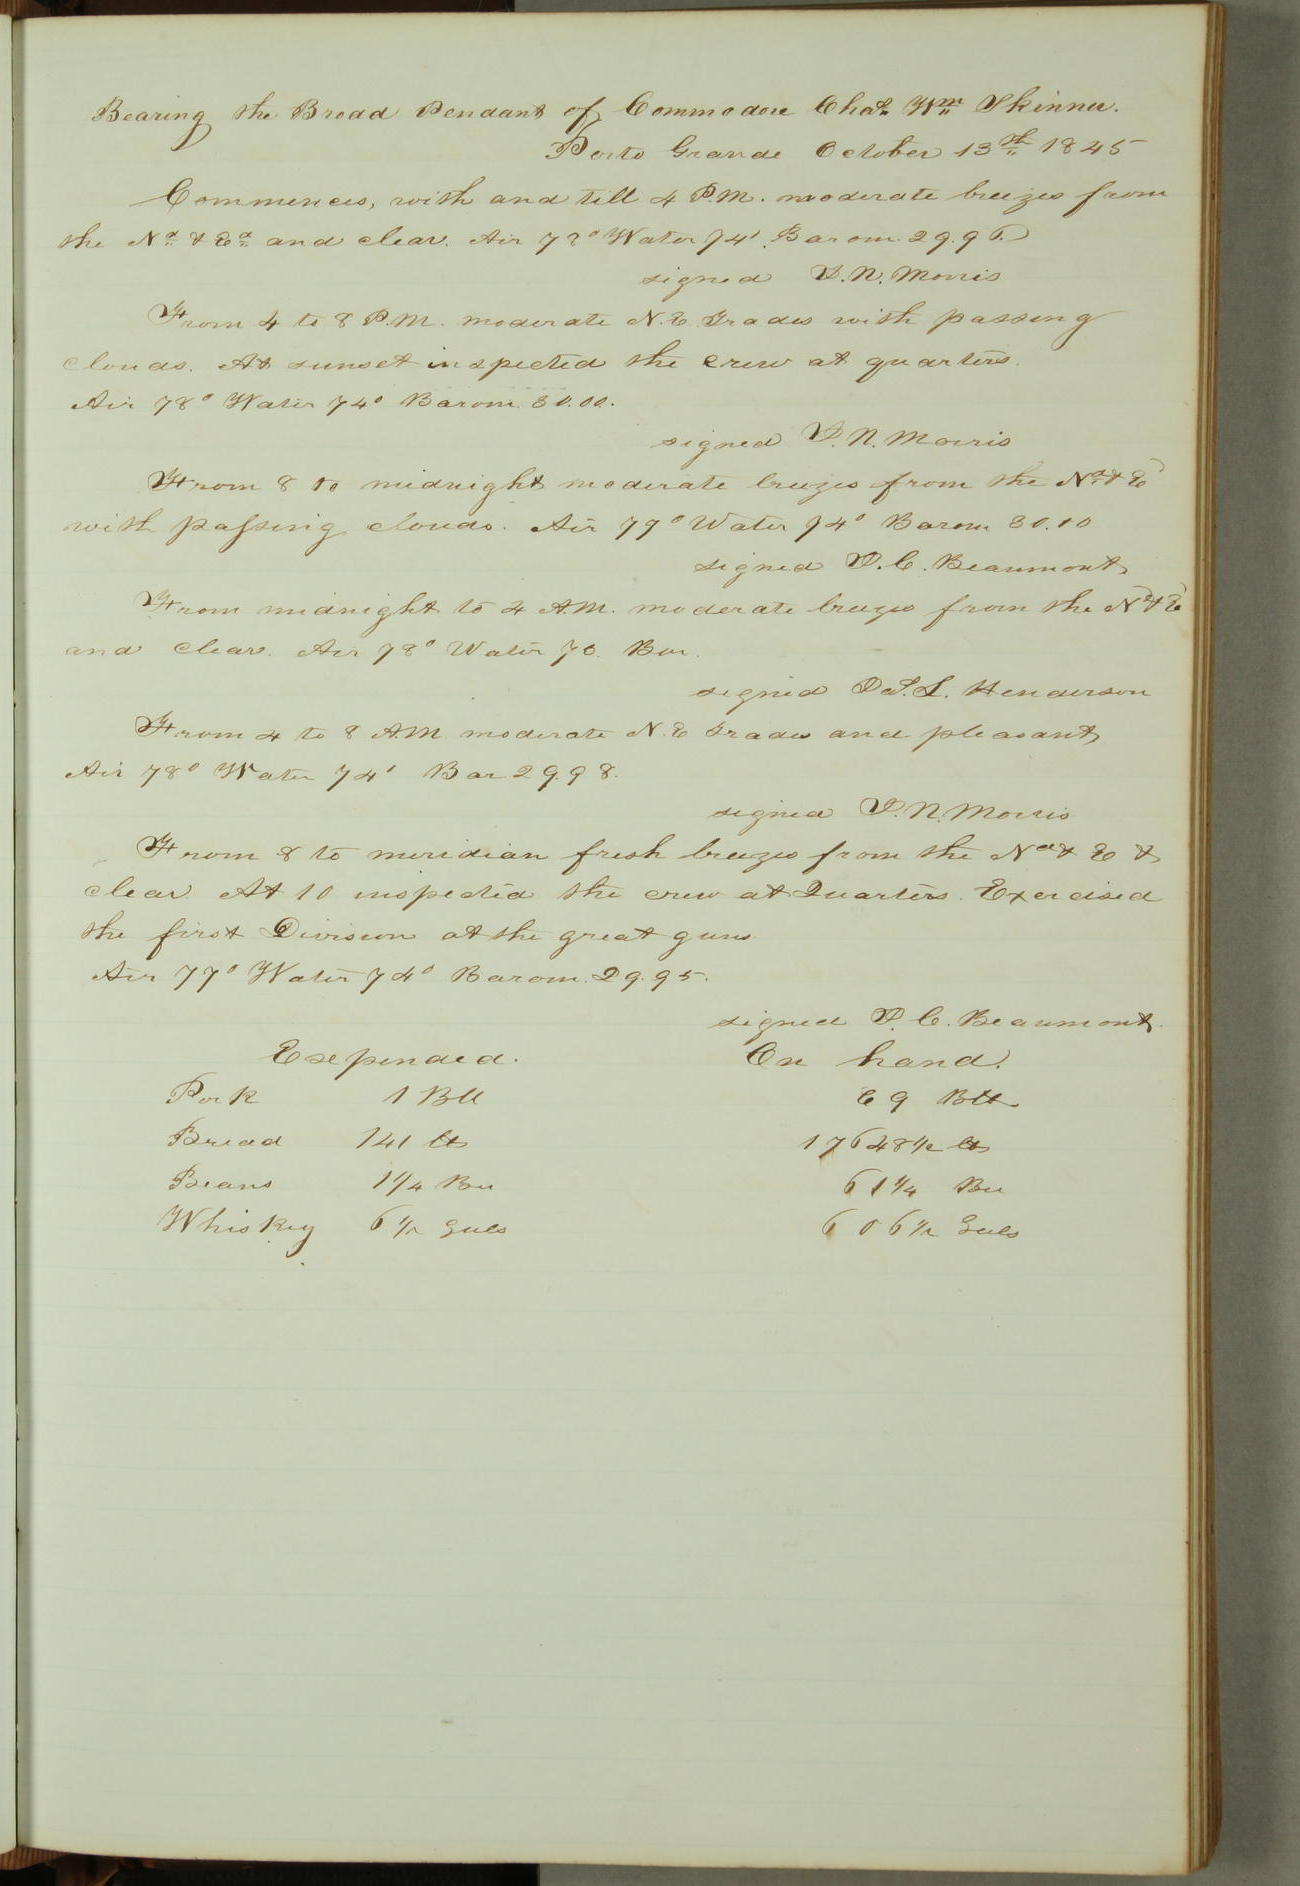 Bearing the Broad Pendant of Commodore Chas Wm Skinner.
Porto Grande October 13th 1845
Commences, with and till 4 P.M. moderate breezes from
the Nd & Ed and clear. Air 78° Water 74° Barom 29.96
signed I.N. Morris
From 4 to 8 P.M. moderate N.E Trades with passing
clouds. At sunset inspected the crew at quarters.
Air 78° Water 74° Barom 30.00.
signed I.N. Morris
From 8 to midnight moderate breezes from the Nd & E
with passing clouds. Air 79° Water 74° Barom 30.10
signed I.C. Beaumont
From midnight to 4 A.M. moderate breezes from the Nd & E
and clear. Air 78° Water 70. Bar.
signed Henderson
From 4 to 8 A.M. moderate N.E Trades and pleasant
Air 78° Water 74° Bar 29.98.
signed I.N. Morris
From 8 to meridian fresh breezes from the Nd & E &
clear. At 10 inspected the crew at Quarters. Exercised
the first Division at the great guns
Air 77° Water 74° Barom. 29.95.
signed I.C. Beaumont.
Expended. On hand.
Pork 1 Bll 69 Bll
Bread 141 lbs 17648 1/2 lbs
Beans 1 1/4 Bu 61 1/4 Bu
Whiskey 6 1/2 Gals 606 1/2 Gals